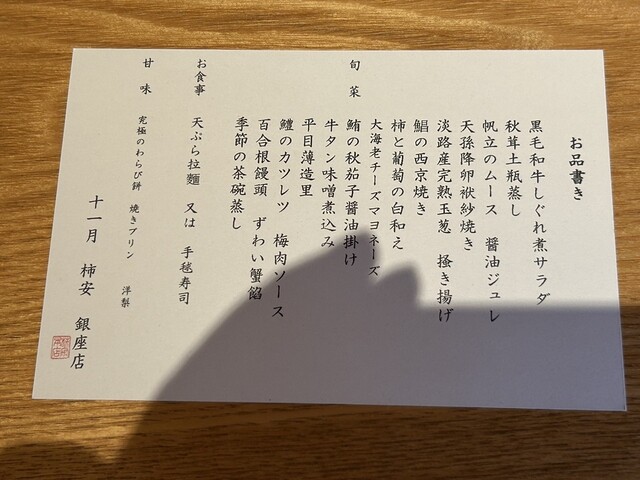 お品書き
旬菜
黒毛和牛しぐれ煮サラダ
秋茸土瓶蒸し
帆立のムース 醤油ジュレ
天孫降卵袱紗焼き
淡路産完熟玉葱 掻き揚げ
鯧の西京焼き
柿と葡萄の白和え
大海老チーズマヨネーズ
鮪の秋茄子醤油掛け
牛タン味噌煮込み
平目薄造里
鱧のカツレツ 梅肉ソース
百合根饅頭 ずわい蟹餡
季節の茶碗蒸し
お食事 天ぷら拉麵 又は 手毬寿司
甘味 究極のわらび餅 焼きプリン 洋梨
十一月 柿安 銀座店